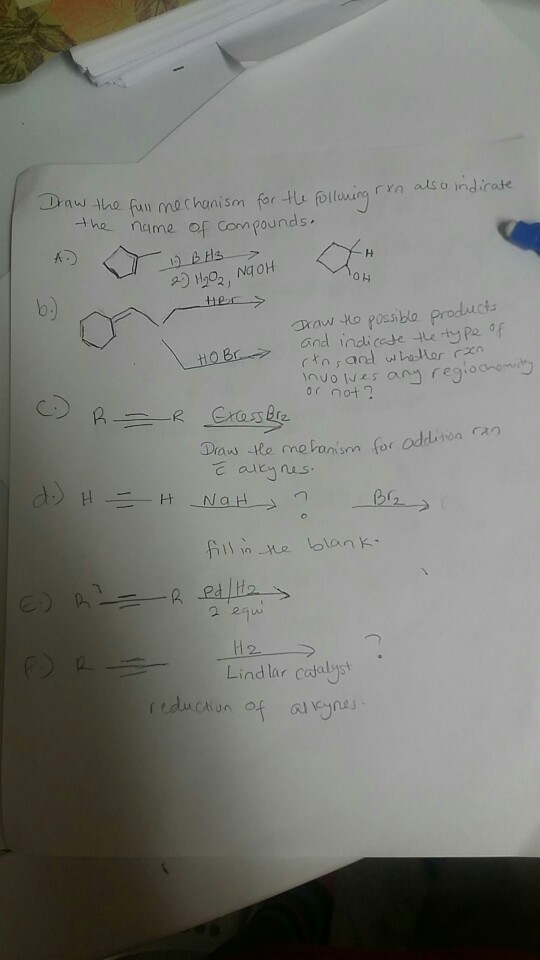 Draw the full mechanism for the following rxn also indicate
the name of compounds.
A.) 1.) BH3
2.) H2O2, NaOH
H
OH
b.) HBr
HOBr
Draw the possible products
and indicate the type of
rxn, and whether rxn
involves any regiochemisty
or not?
C.) R R Excess Br2
Draw the mehanism for addition rxn
c̄ alkynes.
d.) H H NaH ? Br2
fill in the blank.
E.) R' R pd/H2
2 equi
F.) R H2 ?
Lindlar catalyst
reduction of alkynes.